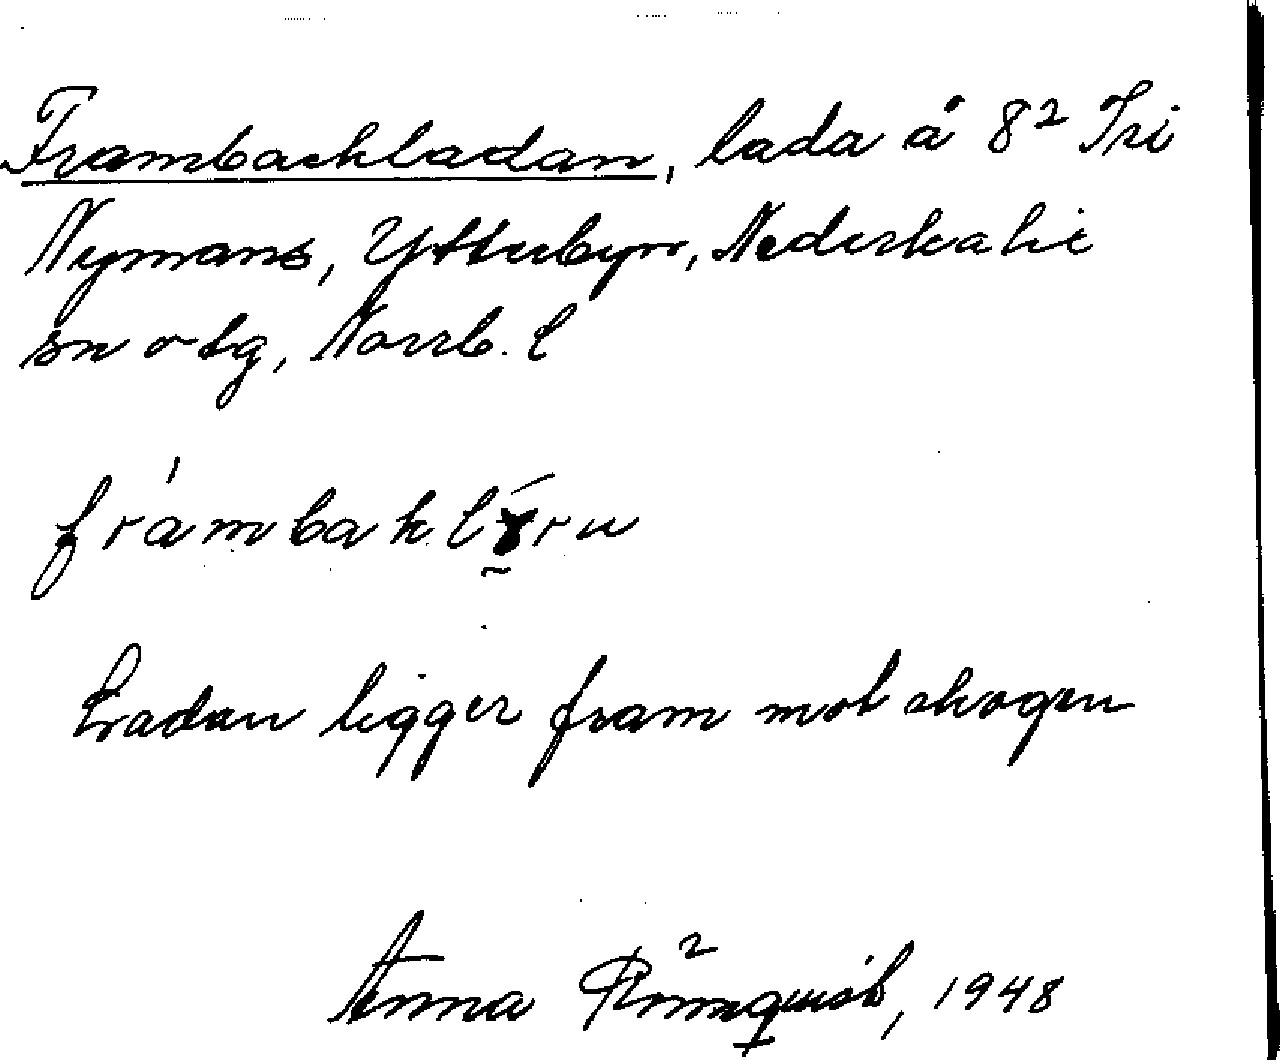 Frambackladan, lada å 8² Tri
Nymans, Ytterbyn, Nederkalix
sn o tg, Norrb. l
Ladan ligger fram mot skogen
Anna Rönnquist, 1948